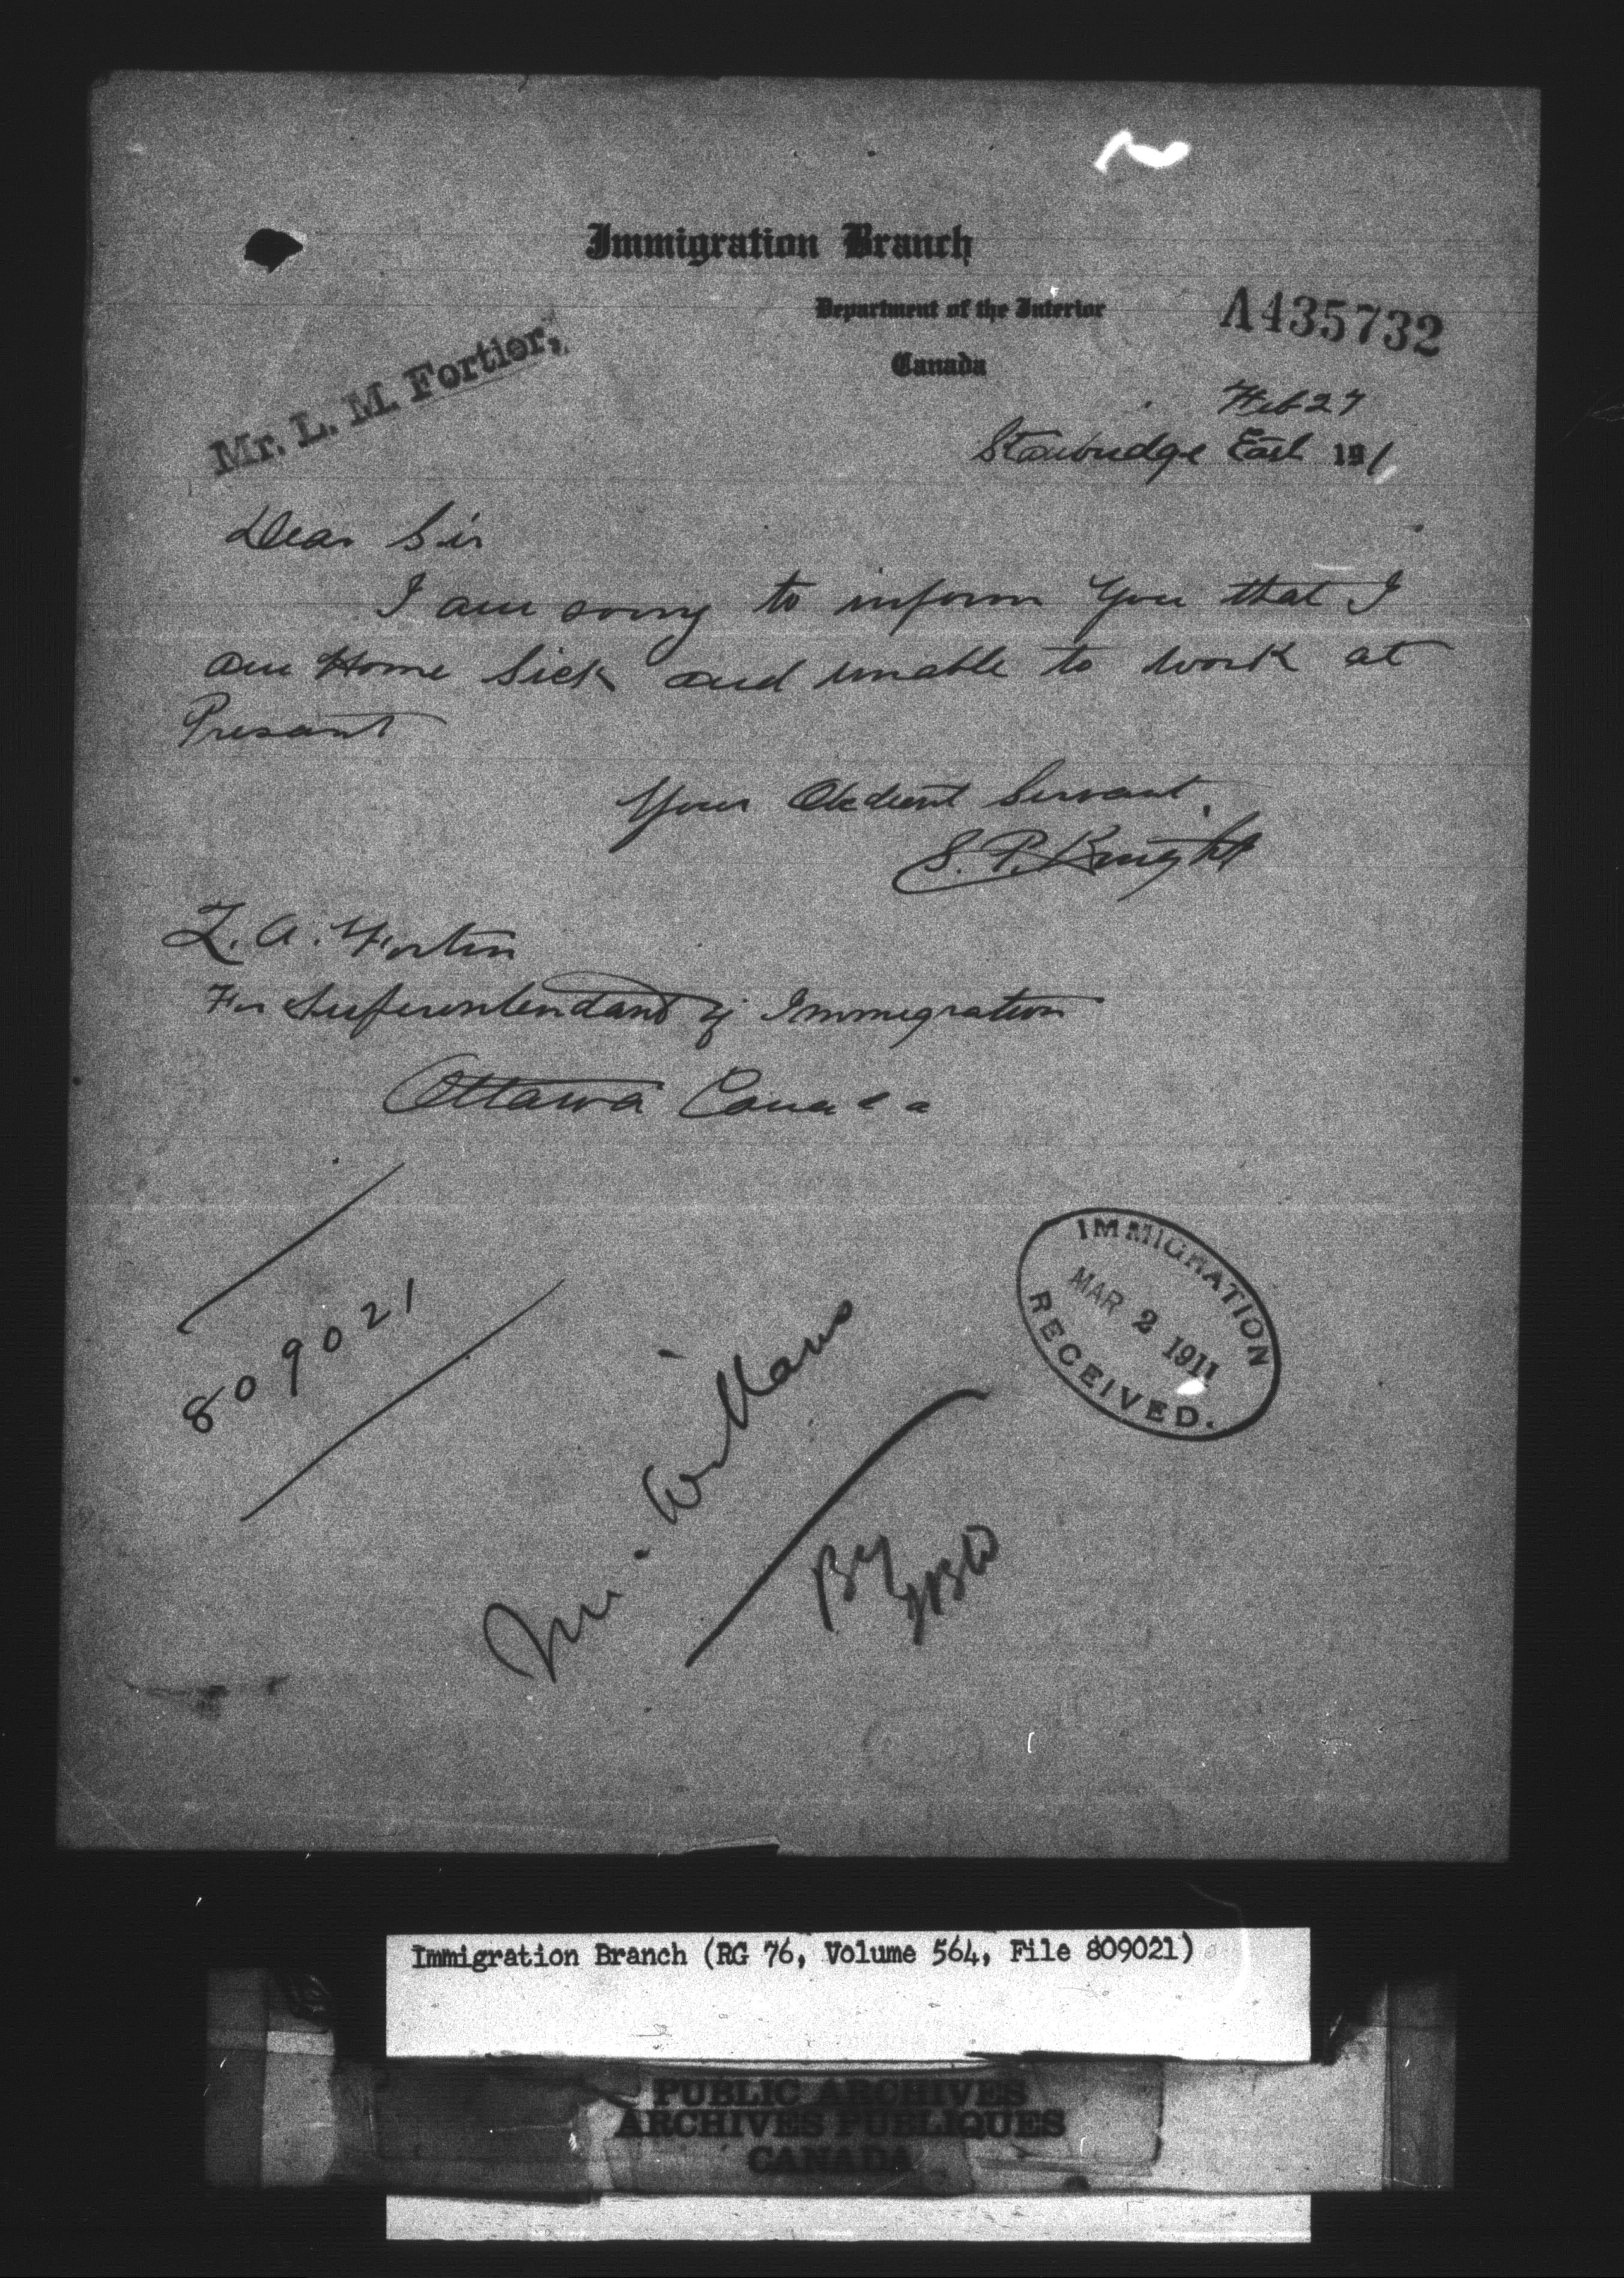 Immigration Branch
Department of the Interior
Canada
A435732
Mr. L. M. Fortier,
Feb 27
Stanbridge East 1911
Dear Sir
I am sorry to inform You that I
am Home Sick and unable to work at
Presant
Your Obedient Servant.
S. P. Knight
L. A. Fortin
For Superentendant of Immigration
Ottawa Canada
809021
IMMIGRATION
MAR 2 1911
RECEIVED.
Mr. Williams
By
Immigration Branch (RG 76, Volume 564, File 809021)
PUBLIC ARCHIVES
ARCHIVES PUBLIQUES
CANADA